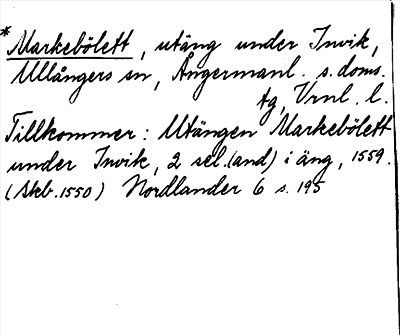 *Markebölett, utäng under Invik,
Ullångers sn, Ångermanl. s. doms.
tg, Vrnl. l.
Tillkommer: Utängen Markebölett
under Invik, 2 sel.(and) i äng, 1559.
(Skb. 1550) Nordlander 6 s. 195